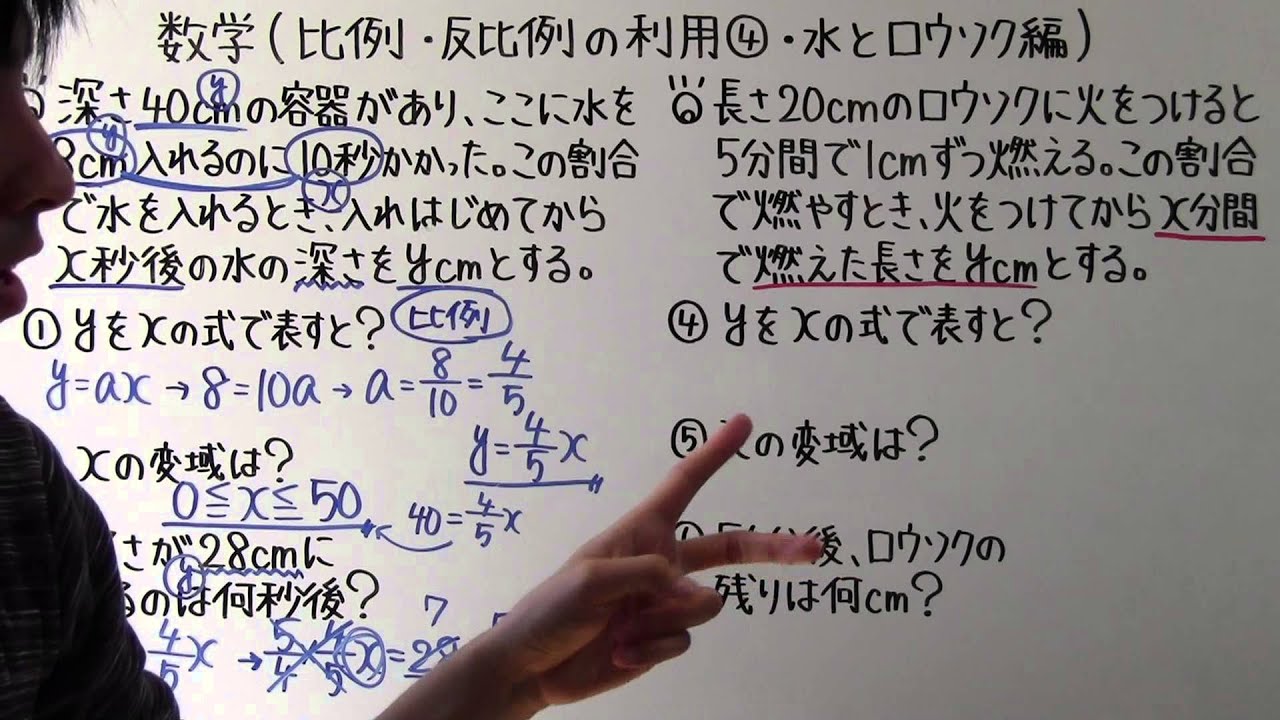 数学(比例・反比例の利用④・水とロウソク編)
深さ40cmの容器があり、ここに水を
8cm入れるのに10秒かかった。この割合
で水を入れるとき、入れはじめてから
x秒後の水の深さをycmとする。
y
y
x
①yをxの式で表すと?
比例
y=ax→8=10a→a=8/10=4/5
y=4/5x
xの変域は?
0≦x≦50
40=4/5x
さが28cmに
y
るのは何秒後?
4/5x→5/4×4/5x=28
7
長さ20cmのロウソクに火をつけると
5分間で1cmずつ燃える。この割合
で燃やすとき、火をつけてからx分間
で燃えた長さをycmとする。
④yをxの式で表すと?
⑤xの変域は?
後、ロウソクの
残りは何cm?